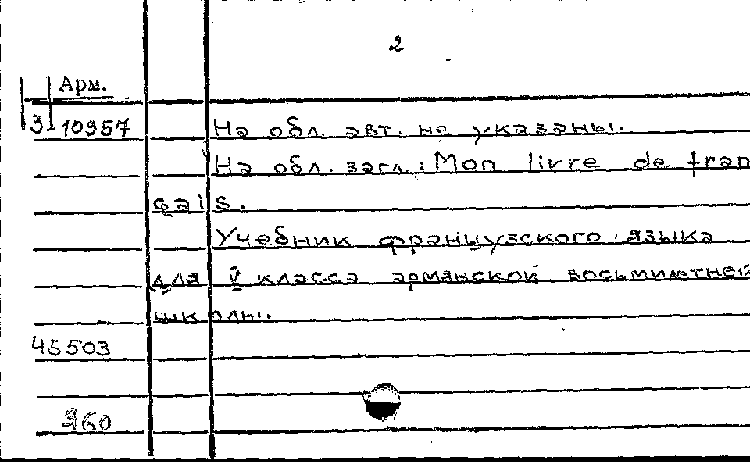 2
Арм.
3-10957
На обл. авт. не указаны.
На обл. загл.: Mon livre de fran
çais.
Учебник французского языка
для V класса армянской восьмилетней
школы.
45503
360